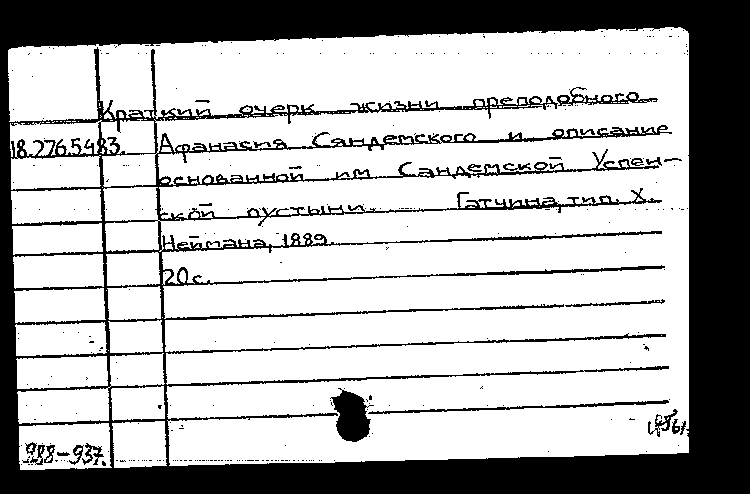 Краткий очерк жизни преподобного
18.276.5.483. Афанасия Сяндемского и описание
основанной им Сандемской Успен-
ской пустыни. Гатчина, тип. Х.
Неймана, 1889.
20 с.
988-937.